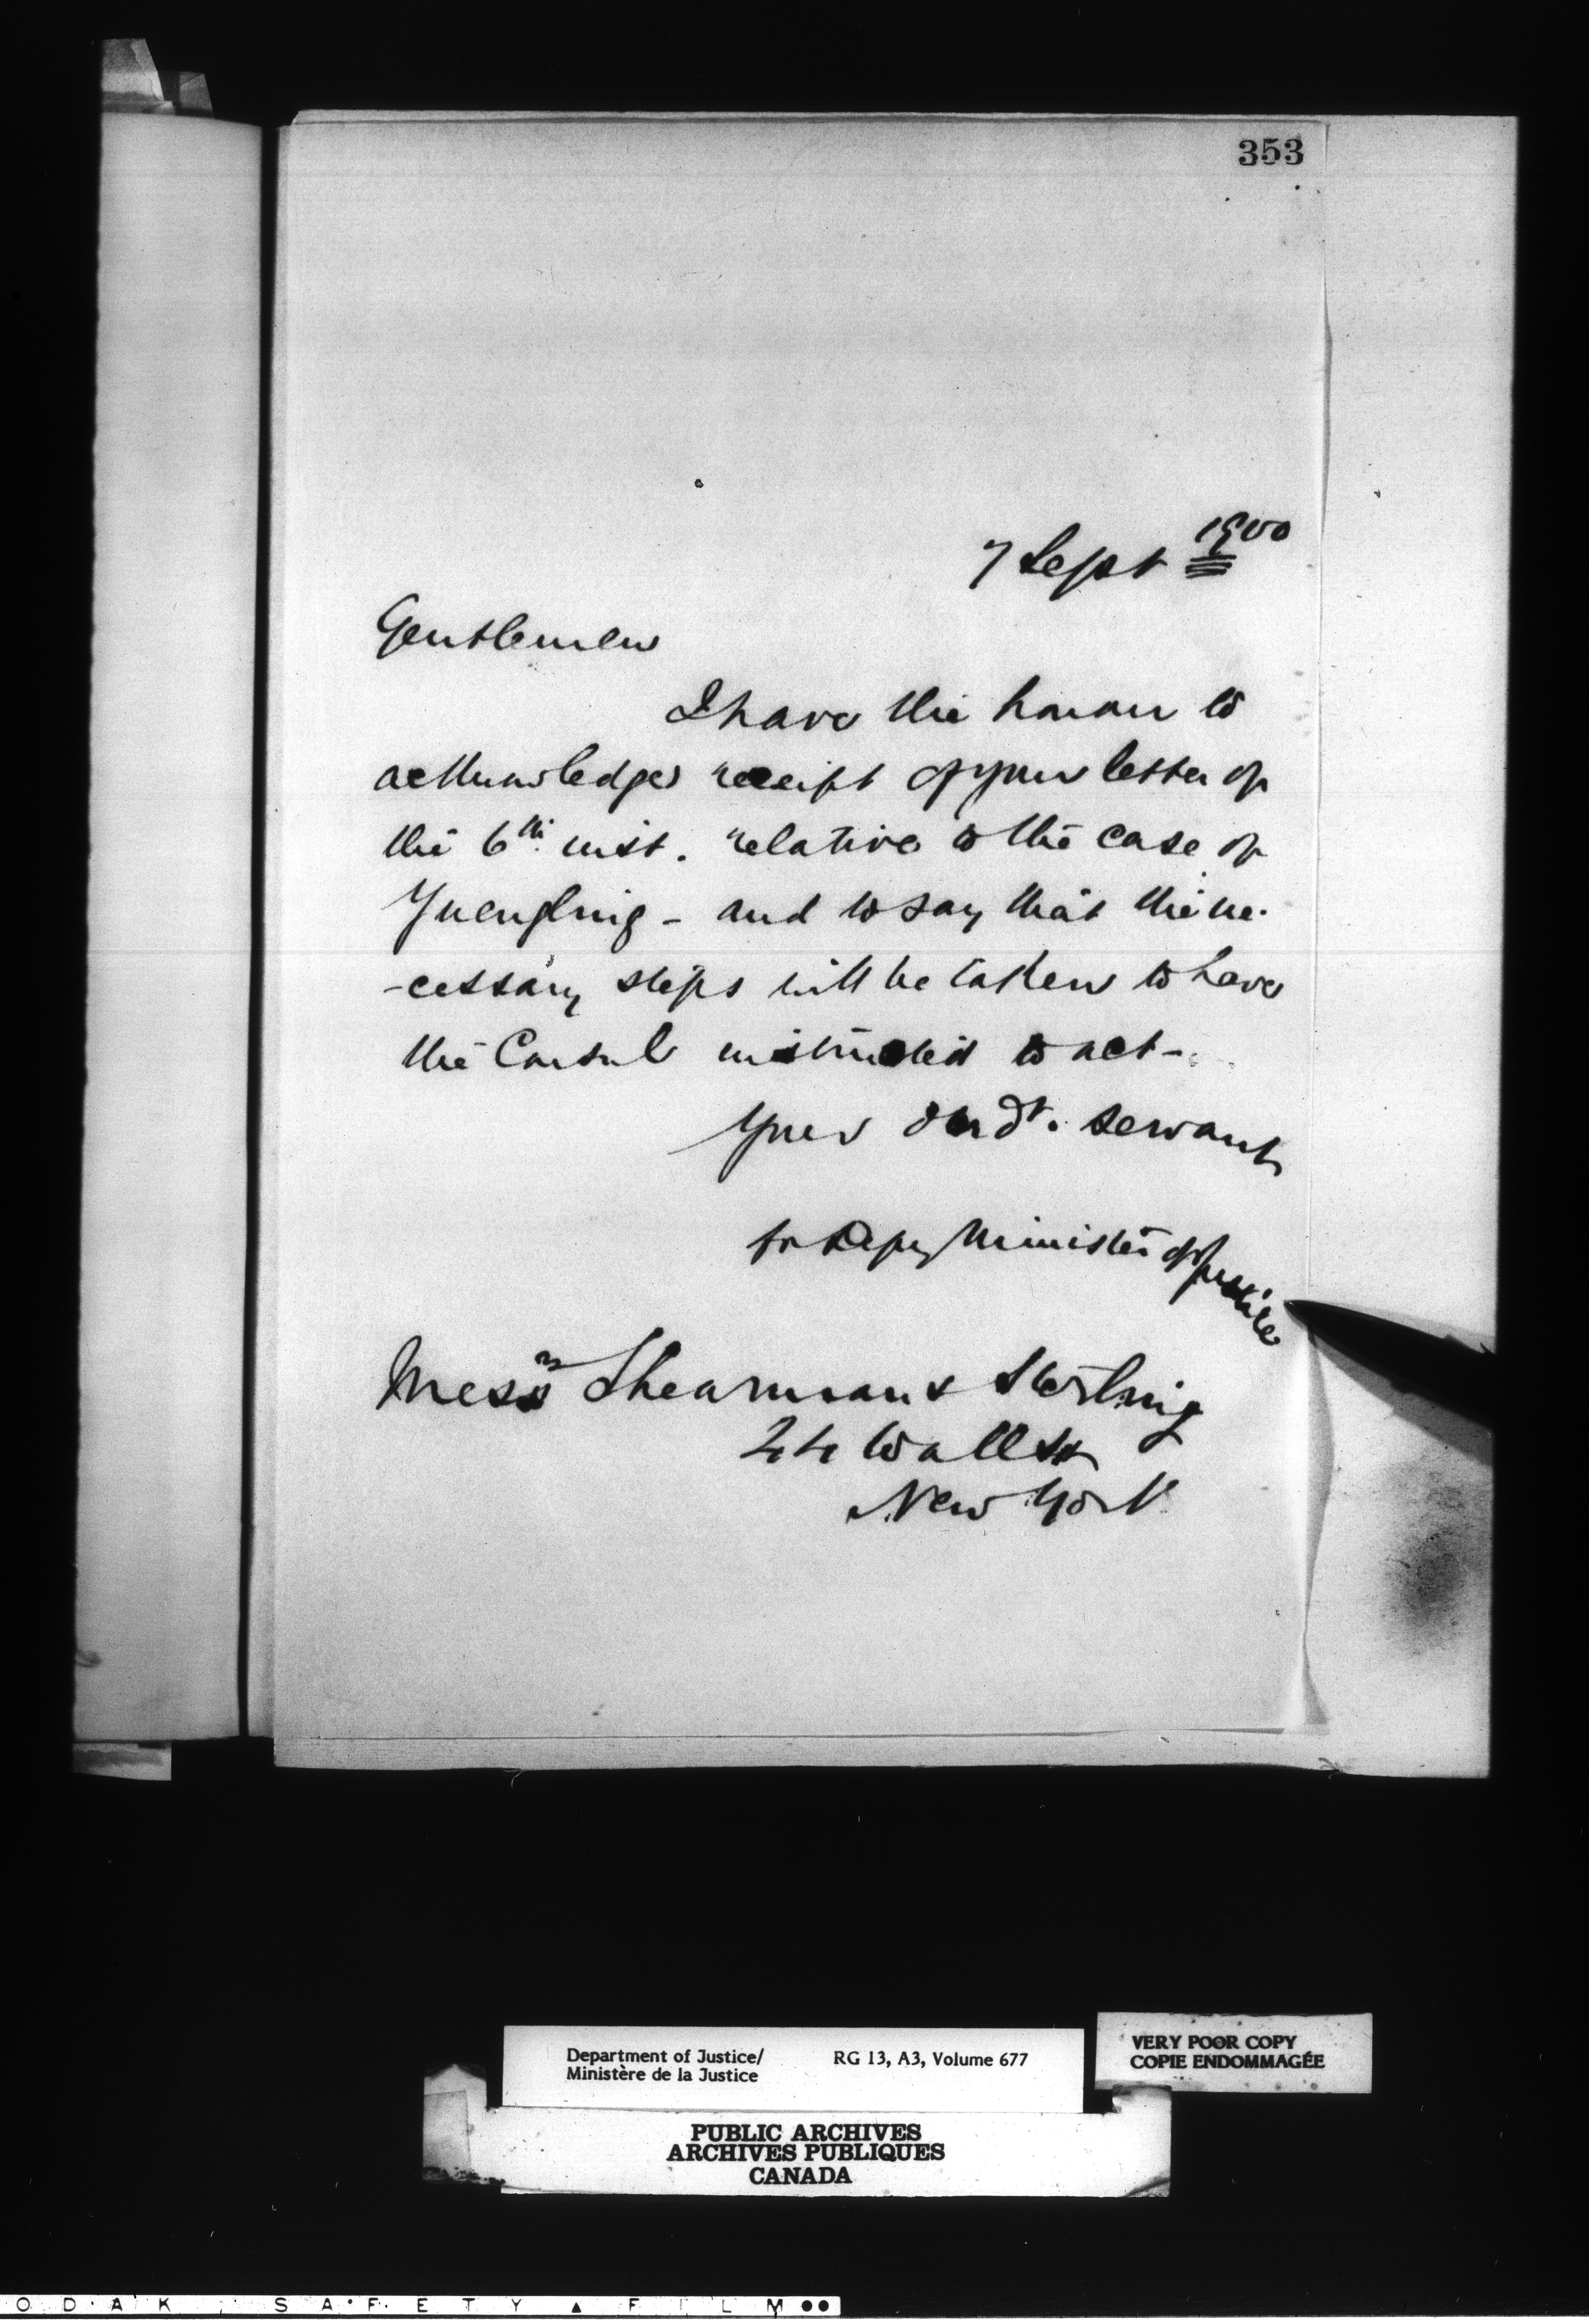 353
7 Sept 1900
Gentlemen
I have the honour to
acknowledge receipt of your letter of
the 6th inst. relative to the case of
Yuengling - and to say that the ne-
-cessary steps will be taken to have
the Consul instructed to act -
Your obedt. servant
for Depy Minister of Justice
Messrs Shearman & Sterling
44 Wall St
New York
Department of Justice/ RG 13, A3, Volume 677
Ministère de la Justice
VERY POOR COPY
COPIE ENDOMMAGÉE
PUBLIC ARCHIVES
ARCHIVES PUBLIQUES
CANADA
ODAK SAFETY ▲ FILM ●●